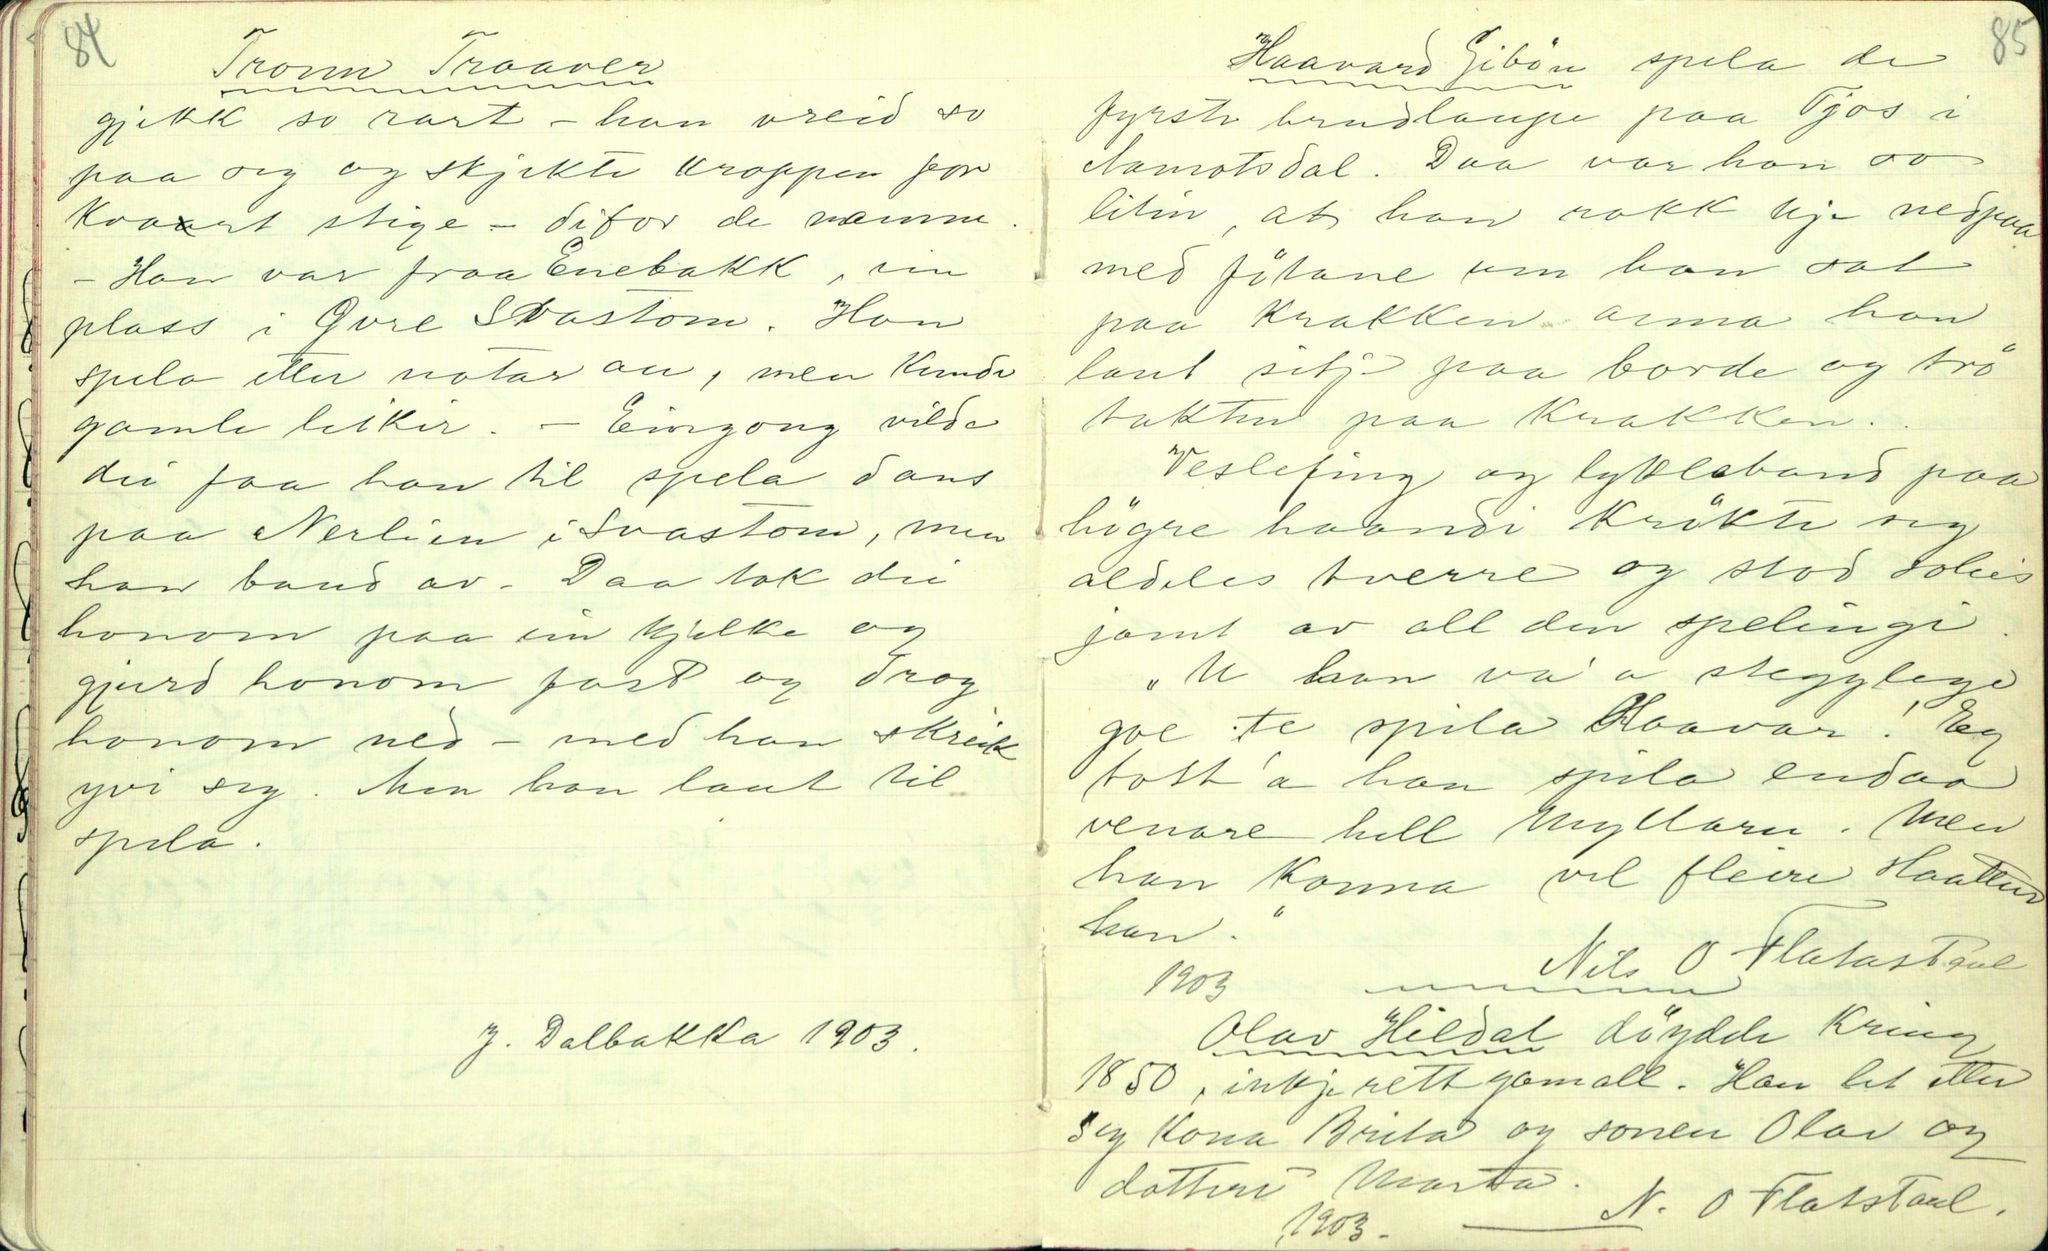 84
Tronn Traaver
gjekk so rart – han vreid so
paa seg og skjekte kroppen for
kvart stige – difor de namne.
– Han var fraa Enebakk, ein
plass i Øvre Svastom. Han
spela etter notar au, men kunde
gamle leikir. – Eingong vilde
dei faa han til spela dans
paa Nerlien i Svastom, men
han baud av. Daa tok dei
honom paa ein kjelke og
gjurd honom fast og drog
honom ned – med han skreik
yvi seg. Men han laut til
spela.
J. Dalbakka 1903.
85
Haavard Giböen spela de
fyrste brudlaupe paa Tjos i
Aamotsdal. Daa var han so
liten, at han rakk kje nedpaa
med fötane um han sat
paa krakken arma han
laut sitje paa borde og trö
takten paa krakken.
Veslefing og lykleband paa
högre haandi krökte seg
aldeles tverre og stod soleis
jamt av all den spelingi.
„U han va' a steggylege
goe te spila Haavar! Eg
tott' a han spila endaa
venare hell Myllarn. Men
han konna vel fleire Haatten
han."
1903 Nils O Flatastaul
Olav Hildal döydde kring
1850, inkje rett gamall. Han let etter
seg kona Brita og sonen Olav og
dotteri Marta.
1903. N. O Flatstaul.